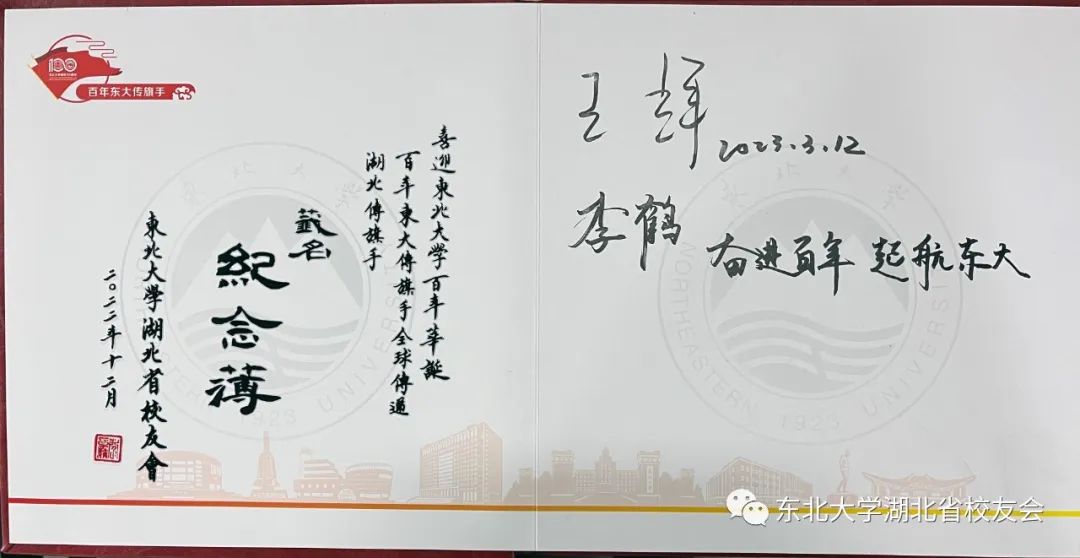 100
百年东大传旗手
喜迎東北大学百年華誕
百年東大傳旗手全球傳遞
湖北傳旗手
簽名
紀念薄
東北大學湖北省校友會
二〇二二年十二月
東北大學
NORTHEASTERN UNIVERSITY
1923
王辉
2023.3.12
李鹤
奋进百年 起航东大
東北大學
NORTHEASTERN UNIVERSITY
1923
东北大学湖北省校友会